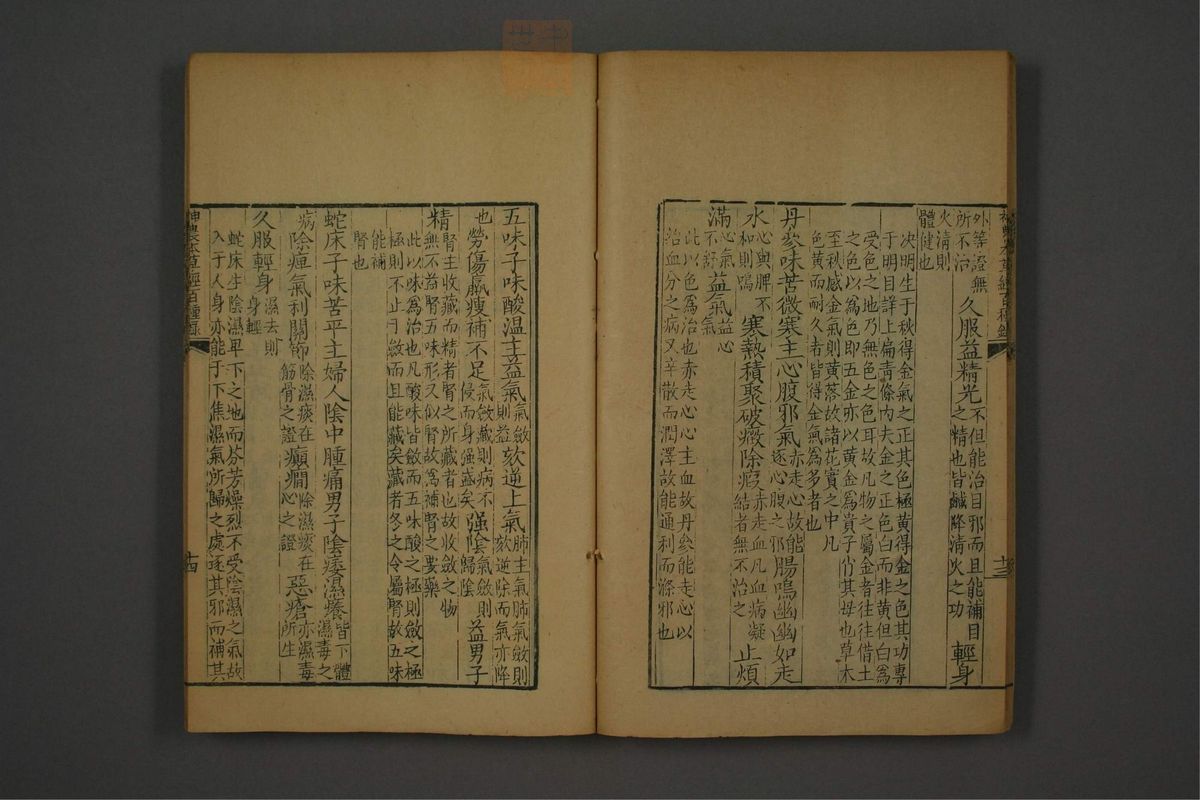 外等證無所不治久服益精光不但能治目邪而且能補目之精也皆鹹降清火之功輕身
火清則體健也
決明生于秋得金氣之正其色極黃得金之色其功專
于明目詳上扁青條內夫金之正色白而非黃但白爲
受色之地乃無色之色耳故凡物之屬金者往往借土
之色以爲色即五金亦以黃金爲貴子肖其母也草木
至秋感金氣則黃落故諸花實之中凡
色黃而耐久者皆得金氣爲多者也
丹參味苦微寒主心腹邪氣赤走心故能逐心腹之邪腸鳴幽幽如走
水心與脾不和則鳴寒熱積聚破癥除瘕赤走血凡血病凝結者無不治之止煩
滿心氣不舒益氣益心氣
此以色爲治也赤走心心主血故丹參能走心以
治血分之病又辛散而潤澤故能通利而滌邪也
神農本草經百種錄
十三
五味子味酸溫主益氣氣斂則益欬逆上氣肺主氣肺氣斂則欬逆除而氣亦降
也勞傷羸瘦補不足氣斂藏則病不侵而身强盛矣强陰氣斂則歸陰益男子
精腎主收藏而精者腎之所藏者也故收斂之物無不益腎五味形又似腎故爲補腎之要藥
此以味爲治也凡酸味皆斂而五味酸之極則斂之極
極則不止于斂而且能藏矣藏者冬之令屬腎故五味
能補
腎也
蛇床子味苦平主婦人陰中腫痛男子陰痿濕癢皆下體濕毒之
病除痺氣利關節除濕痰在筋骨之證癲癇除濕痰在心之證惡瘡亦濕毒所生
久服輕身濕去則身輕
蛇床生陰濕卑下之地而芬芳燥烈不受陰濕之氣故
入于人身亦能于下焦濕氣所歸之處逐其邪而補其
神農本草經百種錄
十四